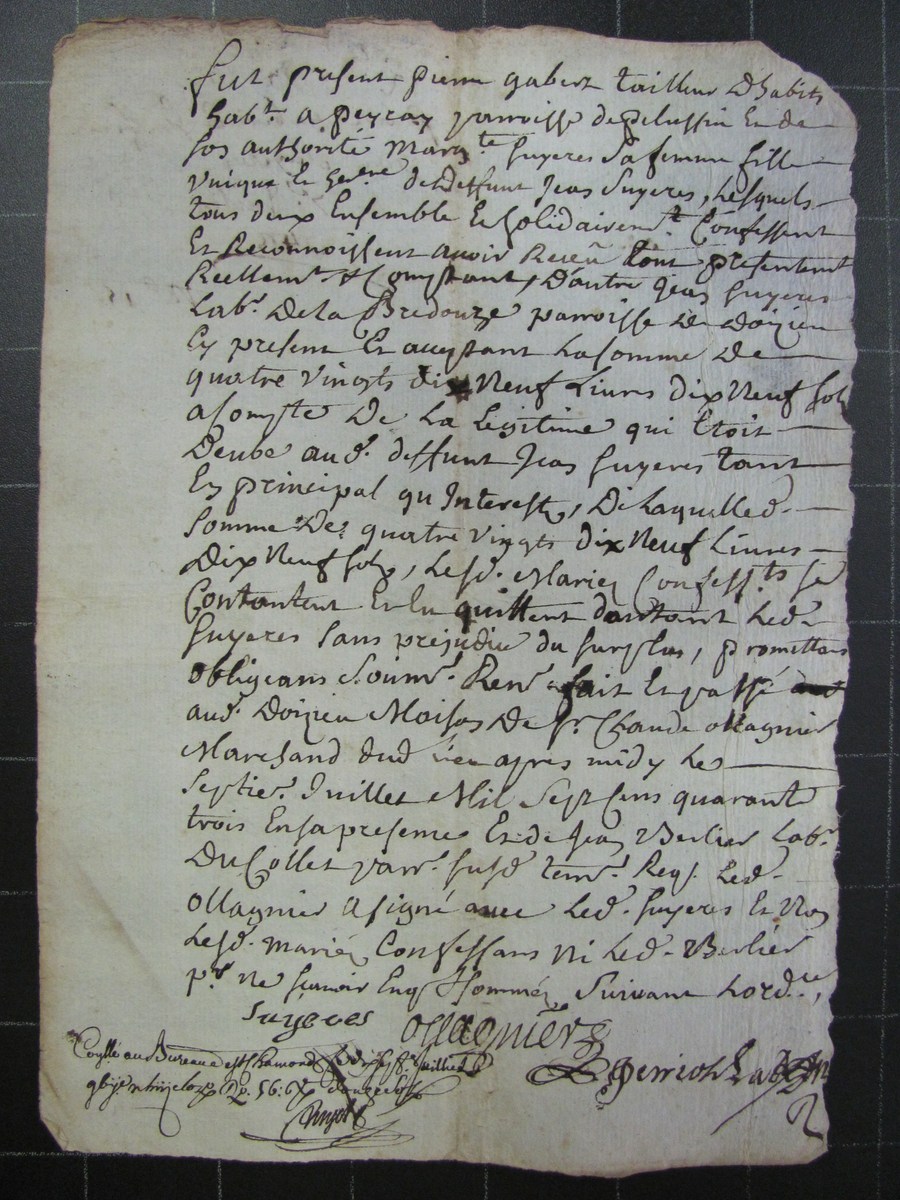 fut present pierre gabert tailleur dhabits
habt. a peyray parroisse de pelussin Et de
son authorité Margte. Suyeres Sa femme fille
vnique Et herere. de deffunt Jean Suyeres, Lesquels
tous deux Ensemble Et solidairemt. Confessent
Et Reconnoissent avoir Receü tout presentemt
Reellemt. & Comptant, Dautre Jean Suyeres
Labr. De La Bredouze parroisse De Doizieu
Cy present Et acceptant La somme De
quatre vingts dix Neuf Livres dix Neuf sols
a Compte De La Legitime qui Etoit
Deube aud. deffunt Jean Suyeres tant
En principal qu Interests, De Laquelled.
Somme De quatre vingts dix Neuf Livres
Dix Neuf sols, Lesd. Mariez Confessts. se
Contentent Et En quittent dautant Led.
Suyeres Sans prejudice du surplus, promettans
obligeans Soumr. Renr. fait Et passé
aud. Doizieu Maison De sr. Claude ollagnier
Marchand dud. Lieu apres midy Le
Septier. Juillet Mil Sept Cens quarante
trois En sa presence Et de Jean Verlier Labr.
Du Collet parr. susd. temr. Reqs. Led.
ollagnier a signé avec Led. Suyeres Et Non
Lesd. Mariez Confessans ni Led. Verlier
pr. ne scavoir Enqs. & sommez Suivant Lordce.,
Suyeres ollagnier
Conllé au Bureau de St Chamond Juillet